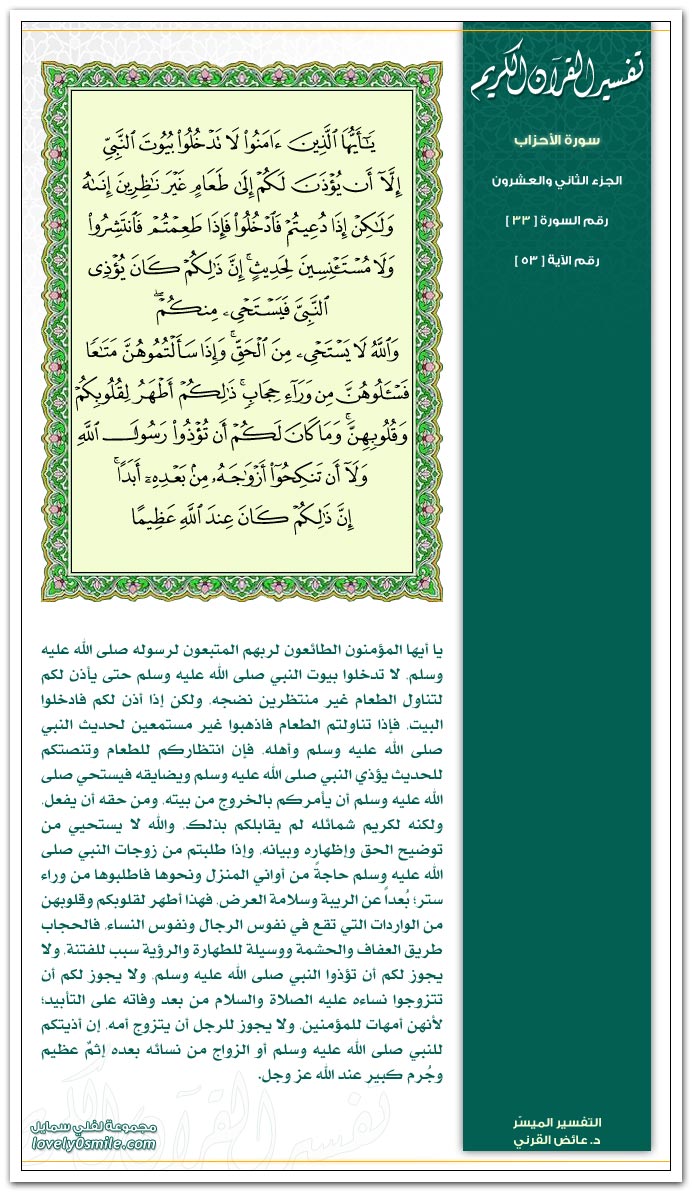 تفسير القرآن الكريم
سورة الأحزاب
الجزء الثاني والعشرون
رقم السورة [ ٣٣ ]
رقم الآية [ ٥٣ ]
يَٰٓأَيُّهَا ٱلَّذِينَ ءَامَنُوا۟ لَا تَدْخُلُوا۟ بُيُوتَ ٱلنَّبِىِّ
إِلَّآ أَن يُؤْذَنَ لَكُمْ إِلَىٰ طَعَامٍ غَيْرَ نَٰظِرِينَ إِنَىٰهُ
وَلَٰكِنْ إِذَا دُعِيتُمْ فَٱدْخُلُوا۟ فَإِذَا طَعِمْتُمْ فَٱنتَشِرُوا۟
وَلَا مُسْتَـْٔنِسِينَ لِحَدِيثٍ ۚ إِنَّ ذَٰلِكُمْ كَانَ يُؤْذِى
ٱلنَّبِىَّ فَيَسْتَحْىِۦ مِنكُمْ ۖ
وَٱللَّهُ لَا يَسْتَحْىِۦ مِنَ ٱلْحَقِّ ۚ وَإِذَا سَأَلْتُمُوهُنَّ مَتَٰعًا
فَسْـَٔلُوهُنَّ مِن وَرَآءِ حِجَابٍ ۚ ذَٰلِكُمْ أَطْهَرُ لِقُلُوبِكُمْ
وَقُلُوبِهِنَّ ۚ وَمَا كَانَ لَكُمْ أَن تُؤْذُوا۟ رَسُولَ ٱللَّهِ
وَلَآ أَن تَنكِحُوٓا۟ أَزْوَٰجَهُۥ مِنۢ بَعْدِهِۦٓ أَبَدًا ۚ
إِنَّ ذَٰلِكُمْ كَانَ عِندَ ٱللَّهِ عَظِيمًا
يا أيها المؤمنون الطائعون لربهم المتبعون لرسوله صلى الله عليه
وسلم، لا تدخلوا بيوت النبي صلى الله عليه وسلم حتى يأذن لكم
لتناول الطعام غير منتظرين نضجه، ولكن إذا أذن لكم فادخلوا
البيت، فإذا تناولتم الطعام فاذهبوا غير مستمعين لحديث النبي
صلى الله عليه وسلم وأهله، فإن انتظاركم للطعام وتنصتكم
للحديث يؤذي النبي صلى الله عليه وسلم ويضايقه فيستحي صلى
الله عليه وسلم أن يأمركم بالخروج من بيته، ومن حقه أن يفعل،
ولكنه لكريم شمائله لم يقابلكم بذلك، والله لا يستحيي من
توضيح الحق وإظهاره وبيانه، وإذا طلبتم من زوجات النبي صلى
الله عليه وسلم حاجةً من أواني المنزل ونحوها فاطلبوها من وراء
ستر؛ بُعداً عن الريبة وسلامة العرض، فهذا أطهر لقلوبكم وقلوبهن
من الواردات التي تقع في نفوس الرجال ونفوس النساء، فالحجاب
طريق العفاف والحشمة ووسيلة للطهارة والرؤية سبب للفتنة، ولا
يجوز لكم أن تؤذوا النبي صلى الله عليه وسلم، ولا يجوز لكم أن
تتزوجوا نساءه عليه الصلاة والسلام من بعد وفاته على التأبيد؛
لأنهن أمهات للمؤمنين، ولا يجوز للرجل أن يتزوج أمه، إن أذيتكم
للنبي صلى الله عليه وسلم أو الزواج من نسائه بعده إثمٌ عظيم
وجُرم كبير عند الله عز وجل.
تفسير القرآن الكريم
مجموعة لفلي سمايل
lovely0smile.com
التفسير الميسّر
د. عائض القرني